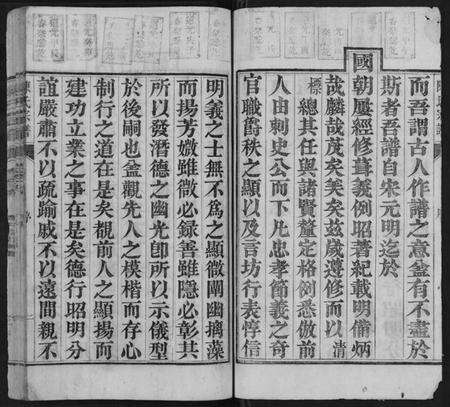 而吾謂古人作譜之意蓋有不盡於
斯者吾譜自宋元明迄於
國朝屢經修葺義例昭著紀載明備炳
哉麟哉茂矣美矣茲歲遵修而以清
標總其任與諸賢釐定格例悉倣前
人由刺史公而下凡忠孝節義之奇
官職爵秩之顯以及言坊行表惇信
明義之士無不為之顯微闡幽摛藻
而揚芳媺雖微必錄善雖隱必彰共
所以發潛德之幽光即所以示儀型
於後嗣也盆觀先人之模楷而存心
制行之道在是矣覩前人之顯揚而
建功立業之事在是矣德行昭明分
誼嚴肅不以疏踰戚不以遠間親不